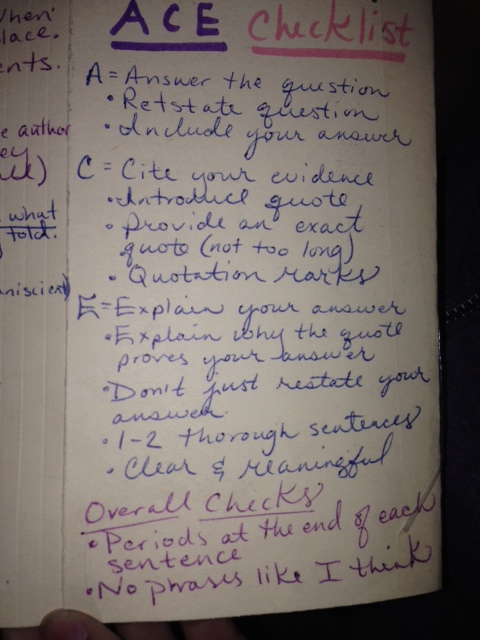 when
lace.
ents.
e author
ey
what
told.
niscient)
ACE Checklist
A = Answer the question
• Retstate question
• Include your answer
C = Cite your evidence
• Introduce quote
• Provide an exact
quote (not too long)
• Quotation Marks
E = Explain your answer
• Explain why the quote
proves your answer
• Don't just restate your
answer.
• 1-2 thorough sentences
• Clear & meaningful
Overall Checks
• Periods at the end of each
sentence
• No phrases like I think